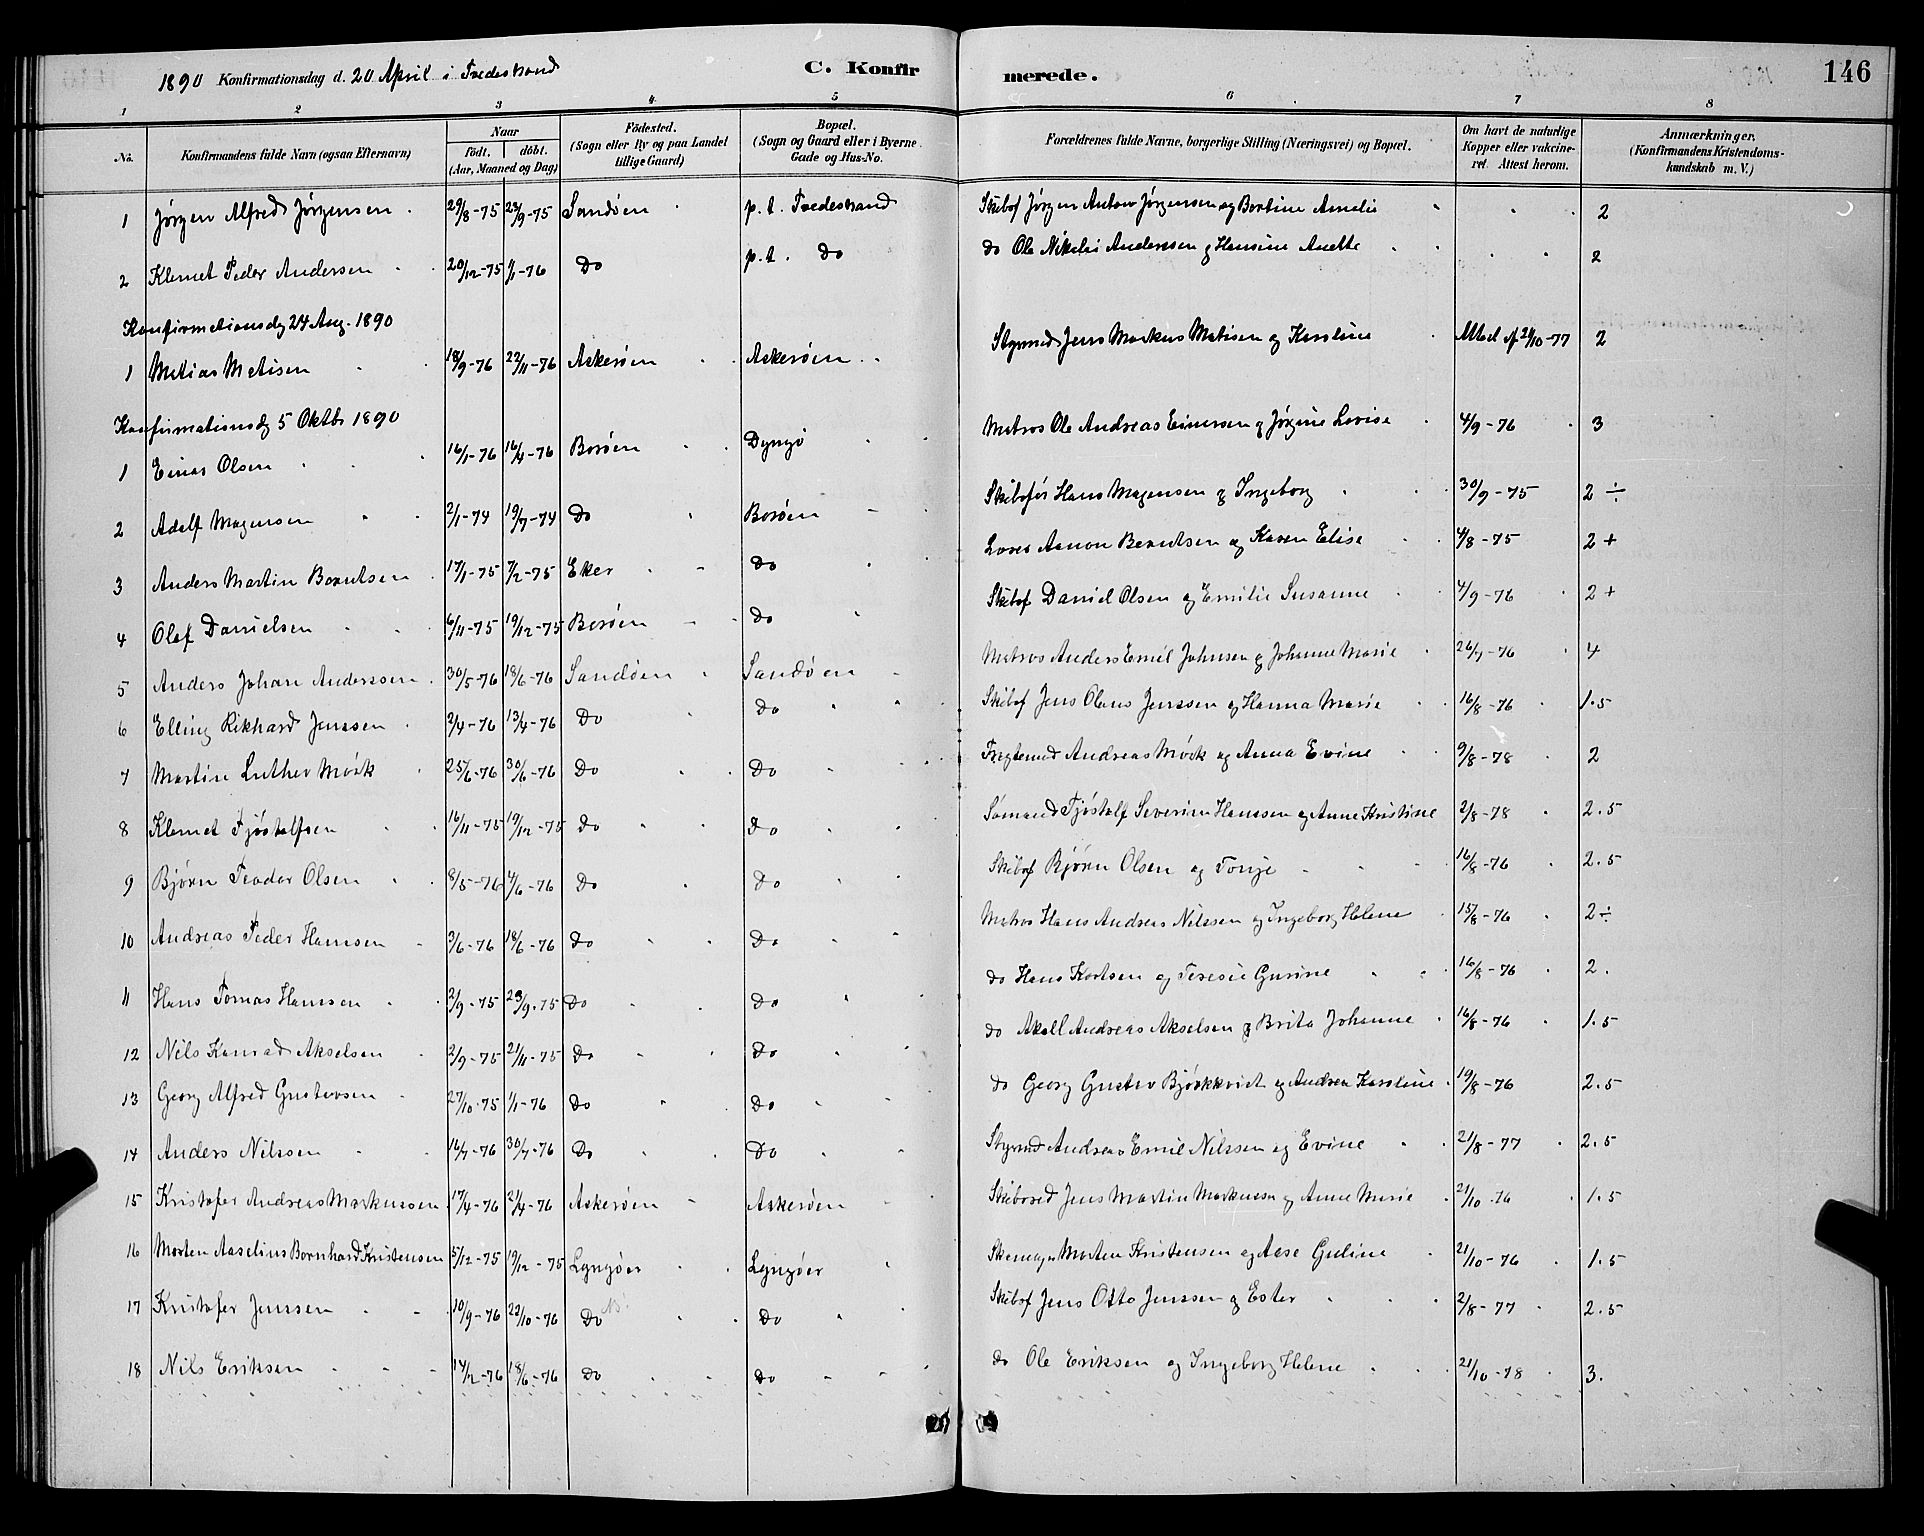 1890 Konfirmationsdag d. 20 April i Tvedestrand C. Konfirmerede. 146
1 2 3 4 5 6 7 8
No. Konfirmandens fulde Navn (ogsaa Efternavn) Naar født. døbt. (Aar, Maaned og Dag) Fødested. (Sogn eller By og paa Landet tillige Gaard) Bopæl. (Sogn og Gaard eller i Byerne Gade og Hus-No. Forældrenes fulde Navne, borgerlige Stilling (Næringsvei) og Bopæl. Om havt de naturlige Kopper eller vakcineret. Attest herom. Anmærkninger. (Konfirmandens Kristendomskundskab m. V.)
1 Jørgen Alfred Jørgensen 29/8-75 23/9-75 Sandøen p. t. Tvedestrand Skibsf Jørgen Anton Jørgensen og Bertine Amalie 2
2 Klemet Peder Andersen 20/12-75 1/1-76 Do p. t. Do do Ole Nikolai Anderssen og Hansine Anette 2
Konfirmationsdg 24 Aug. 1890
1 Matias Matisen 18/9-76 22/11-76 Askerøen Askerøen Styrmd Jens Markus Matisen og Karoline 21/10-77 2
Konfirmationsdg 5 Oktbr 1890
1 Einar Olsen 16/1-76 16/4-76 Borøen Dyngø Matros Ole Andreas Einersen og Jørgine Lovise 4/9-76 3
2 Adolf Mogensen 2/1-74 19/7-74 Do Borøen Skibsfør Hans Mogensen og Ingeborg 30/9-75 2 ÷
3 Anders Martin Berntsen 17/1-75 7/2-75 Eker Do Lods Aanon Berntsen og Karen Elise 4/8-75 2 +
4 Olaf Danielsen 6/11-75 19/12-75 Borøen Do Skibsf Daniel Olsen og Emilie Susanne 4/9-76 2 +
5 Anders Johan Anderssen 30/5-76 18/6-76 Sandøen Sandøen Matros Anders Emil Johnsen og Johanne Marie 26/7-76 4
6 Elling Rikhard Jenssen 2/4-76 13/4-76 Do Do Skibsf Jens Olaus Jenssen og Hanna Marie 16/8-76 1.5
7 Martin Luther Mørk 25/6-76 30/6-76 Do Do Andreas Mørk og Anna Evine 9/8-78 2
8 Klemet Tjøstolfsen 16/11-75 19/12-75 Do Do Sømand Tjøstolf Severin Hanssen og Anne Kristine 2/8-78 2.5
9 Bjørn Teodor Olsen 8/5-76 4/6-76 Do Do Skibsf Bjørn Olsen og Tonje 16/8-76 2.5
10 Andreas Peder Hansen 3/6-76 18/6-76 Do Do Matros Hans Andreas Nilssen og Ingeborg Helene 15/8-76 2÷
11 Hans Tomas Hanssen 2/9-75 23/9-75 Do Do do Hans Kortsen og Teresie Gurine 16/8-76 2.
12 Nils Konrad Akselsen 2/9-75 21/11-75 Do Do do Aksell Andreas Akselsen og Brita Johanne 16/8-76 1.5
13 Georg Alfred Gustavsen 27/10-75 1/1-76 Do Do do Georg Gustav Bjørkkvist og Andrea Karoline 19/8-76 2.5
14 Anders Nilssen 16/7-76 30/7-76 Do Do Styrmd Andreas Emil Nilssen og Evine 21/8-77 2.5
15 Kristofer Andreas Markussen 17/4-76 21/4-76 Askerøen Askerøen Skibsred Jens Martin Markussen og Anne Marie 21/10-76 1.5
16 Morten Aaselius Bernhard Kristensen 5/12-75 19/12-75 Lyngøer Lyngøer Skomager Morten Kristensen og Aase Guline 21/10-76 1.5
17 Kristofer Jenssen 10/9-76 22/10-76 Do Do Skibsf Jens Otto Jenssen og Ester 2/8-77 2.5
18 Nils Eriksen 14/12-76 18/6-76 Do Do do Ole Eriksen og Ingeborg Helene 21/10-78 3.